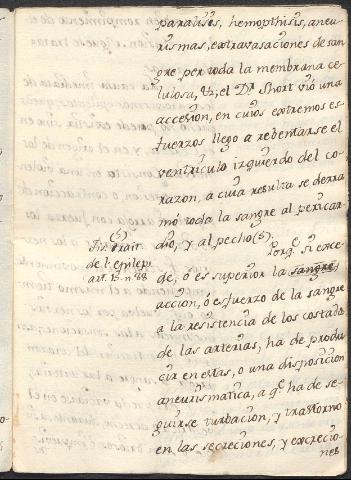 paralises, hemopthisis, aneu-
rismas, extravasaciones de san-
gre per toda la membrana ce-
lulosa, &; el Dr. Short vió una
accesion, en cuios extremos es-
fuerzos llego a rebentarse el
ventriculo izquierdo del co-
razon, a cuia resulta se derra
mó toda la sangre al pericar-
dio, y al pecho(5).
(5)
Tr. trait
de l'epilep.
art. 15. n. 88.
Porq.e si exce-
de, ó es superior la sangre
accion, ó esfuerzo de la sangre
a la resistencia de los costados
de las arterias, ha de produ
cir en estas, o una disposicion
aneurismatica, a q.e ha de se-
guirse turbacion, y trastorno
en las secreciones, y excrecio-
nes